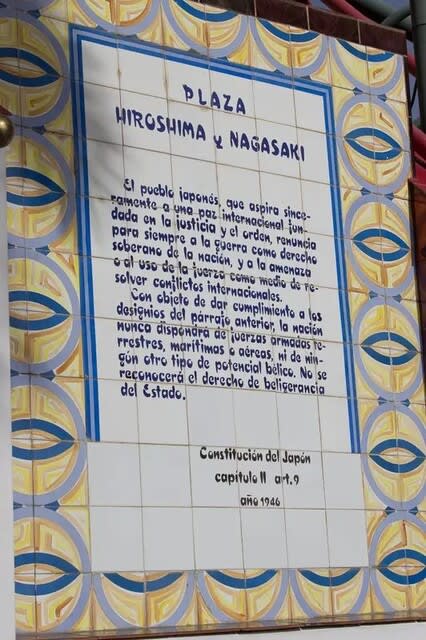 PLAZA
HIROSHIMA y NAGASAKI
El pueblo japonés, que aspira since-
ramente a una paz internacional fun-
dada en la justicia y el orden, renuncia
para siempre a la guerra como derecho
soberano de la nación, y a la amenaza
o al uso de la fuerza como medio de re-
solver conflictos internacionales.
Con objeto de dar cumplimiento a los
designios del párrajo anterior, la nación
nunca dispondrá de fuerzas armadas te-
rrestres, marítimas o aéreas, ni de nin-
gún otro tipo de potencial bélico. No se
reconocerá el derecho de beligerancia
del Estado.
Constitución del Japón
capítulo II art. 9
año 1946